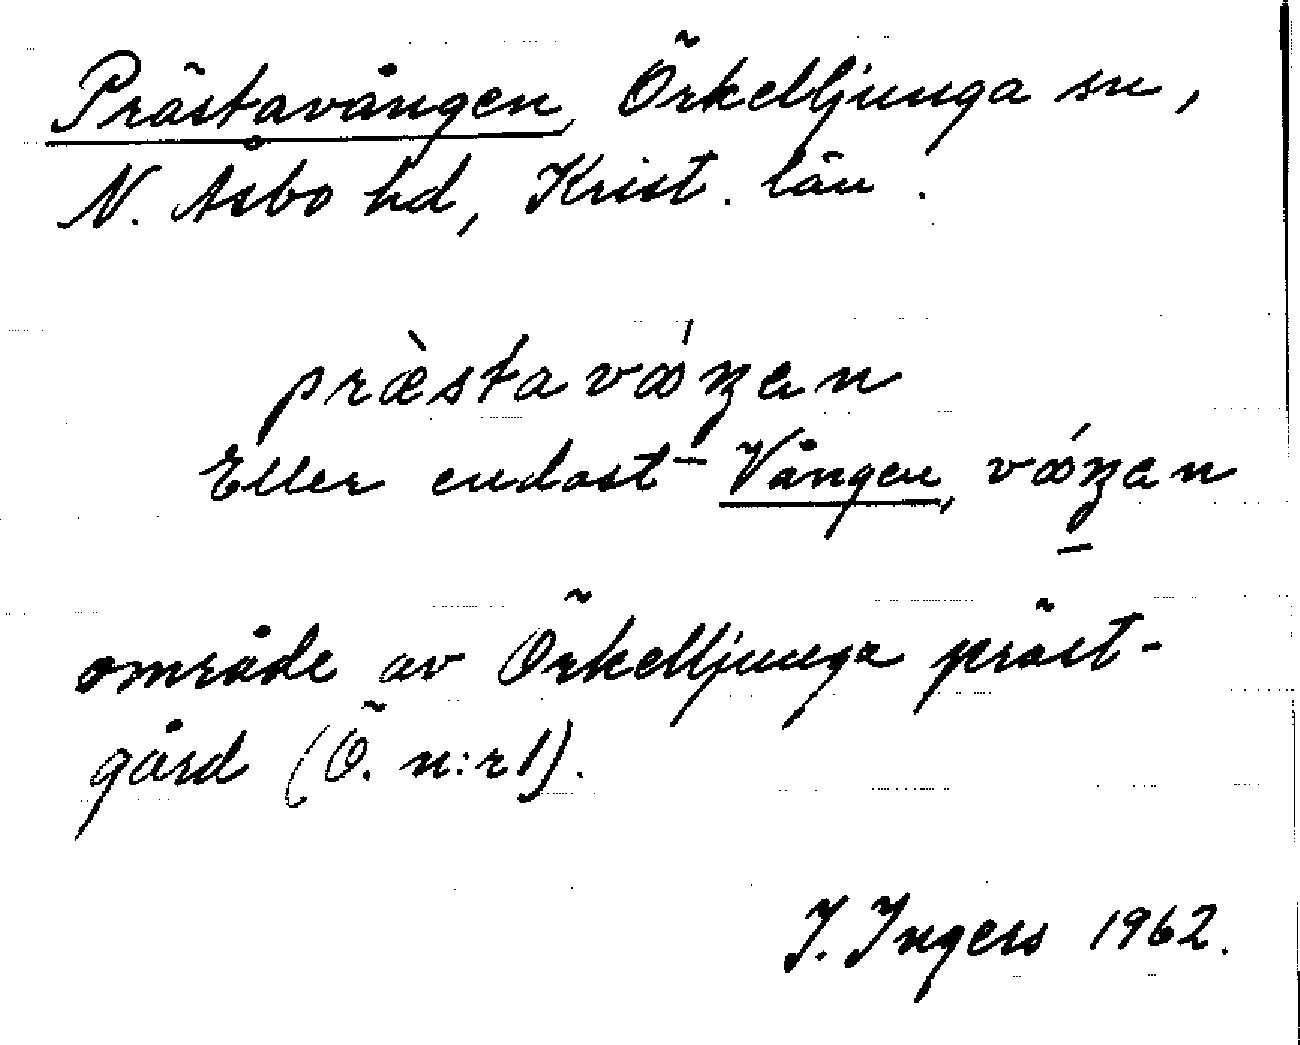 Prästavången, Örkelljunga sn,
N. Åsbo hd, Krist. län.
præ̀stavǻŋen
Eller endast Vången, vǻŋen
område av Örkelljunga präst-
gård (Ö. n:r 1).
I. Ingers 1962.